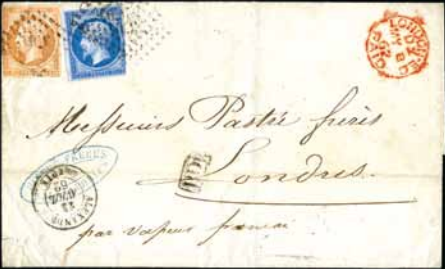 LONDON EC
PAID
MY 8
62
Messieurs Pastré frères
Londres
PD
FRERES
ALEXANDRIE
par vapeur français